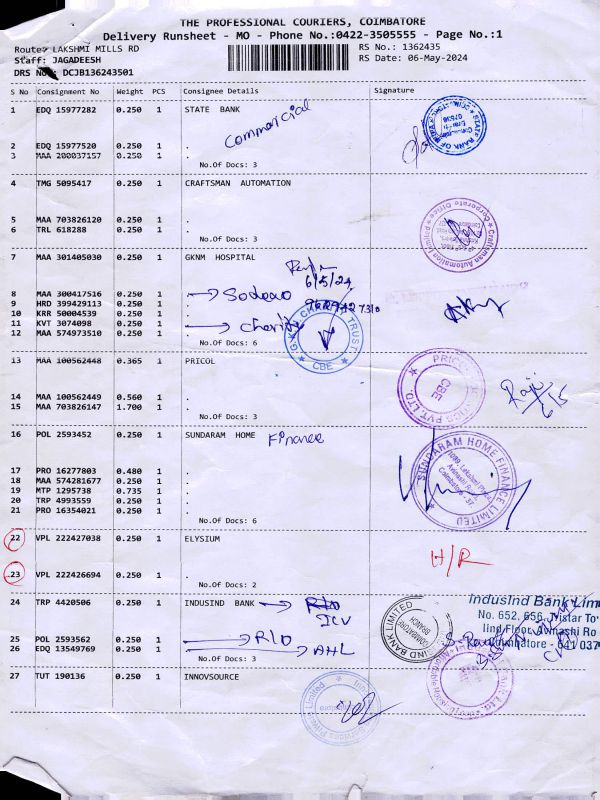 THE PROFESSIONAL COURIERS, COIMBATORE
Delivery Runsheet - MO - Phone No.:0422-3505555 - Page No.:1
Route: LAKSHMI MILLS RD
RS No.: 1362435
Staff: JAGADEESH
RS Date: 06-May-2024
DRS No.: DCJB136243501
S No Consignment No Weight PCS Consignee Details Signature
1 EDQ 15977282 0.250 1 STATE BANK
Commercial
2 EDQ 15977520 0.250 1 .
3 MAA 200037157 0.250 1 .
No.Of Docs: 3
4 TMG 5095417 0.250 1 CRAFTSMAN AUTOMATION
Craftsman Automation Limited
Corporate Office
5 MAA 703826120 0.250 1 .
6 TRL 618288 0.250 1 .
No.Of Docs: 3
7 MAA 301405030 0.250 1 GKNM HOSPITAL
6/5/24
8 MAA 300417516 0.250 1 . Sodexo
9 HRD 399429113 0.250 1 .
10 KRR 50004539 0.250 1 .
11 KVT 3074098 0.250 1 . charity
12 MAA 574973510 0.250 1 .
CHARITY TRUST
CBE
No.Of Docs: 6
13 MAA 100562448 0.365 1 PRICOL
PRICOL
PVT. LTD.
CBE
Raji
6/5
14 MAA 100562449 0.560 1 .
15 MAA 703826147 1.700 1 .
No.Of Docs: 3
16 POL 2593452 0.250 1 SUNDARAM HOME Finance
SUNDARAM HOME FINANCE LIMITED
Coimbatore - 37.
17 PRO 16277803 0.480 1 .
18 MAA 574281677 0.250 1 .
19 MTP 1295738 0.735 1 .
20 TRP 4993559 0.250 1 .
21 PRO 16354021 0.250 1 .
No.Of Docs: 6
22 VPL 222427038 0.250 1 ELYSIUM
H/R
23 VPL 222426694 0.250 1 .
No.Of Docs: 2
24 TRP 4420506 0.250 1 INDUSIND BANK
IndusInd Bank Lim
No. 652, 656, Tristar To
IInd Floor, Avinashi Ro
Coimbatore - 641 037
IND BANK LIMITED
25 POL 2593562 0.250 1 . R/O
26 EDQ 13549769 0.250 1 . AHL
No.Of Docs: 3
27 TUT 190136 0.250 1 INNOVSOURCE